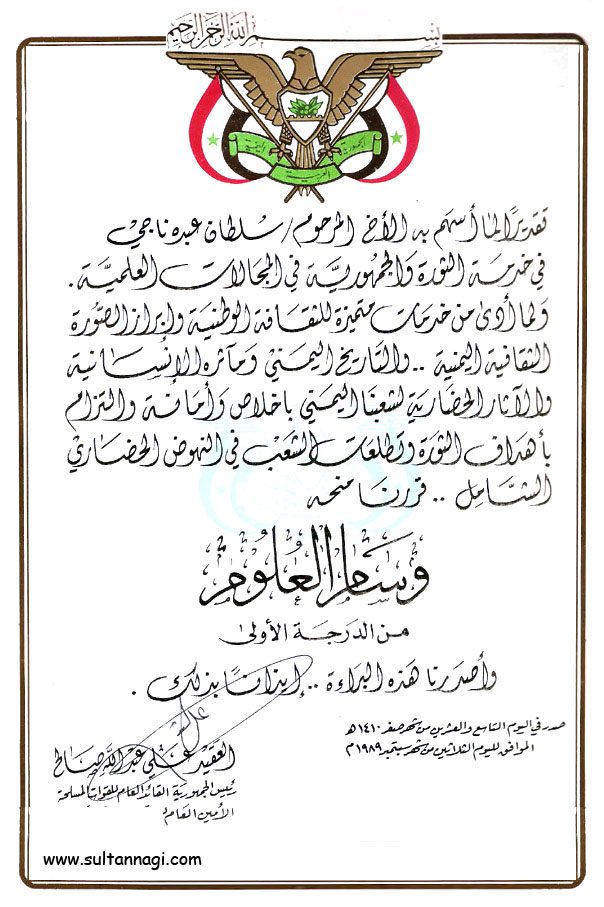 بسم الله الرحمن الرحيم
الجمهورية العربية اليمنية
تقديرًا لما أسهم به الأخ المرحوم / سلطان عبده ناجي
في خدمة الثورة والجمهورية في المجالات العلمية .
ولما أدى من خدمات متميزة للثقافة الوطنية وابراز الصورة
الثقافية اليمنية .. والتاريخ اليمني ومآثره الإنسانية
والآثار الحضارية لشعبنا اليمني باخلاص وأمانة والتزام
بأهداف الثورة وتطلعات الشعب في النهوض الحضاري
الشامل .. قررنا منحه
وسام العلوم
من الدرجة الأولى
وأصدرنا هذه البراءة .. إيذانًا بذلك .
صدر في اليوم التاسع والعشرين من شهر صفر ١٤١٠ هـ
الموافق لليوم الثلاثين من شهر سبتمبر ١٩٨٩ م
العقيد علي عبدالله صالح
رئيس الجمهورية القائد العام للقوات المسلحة
الأمين العام
www.sultannagi.com